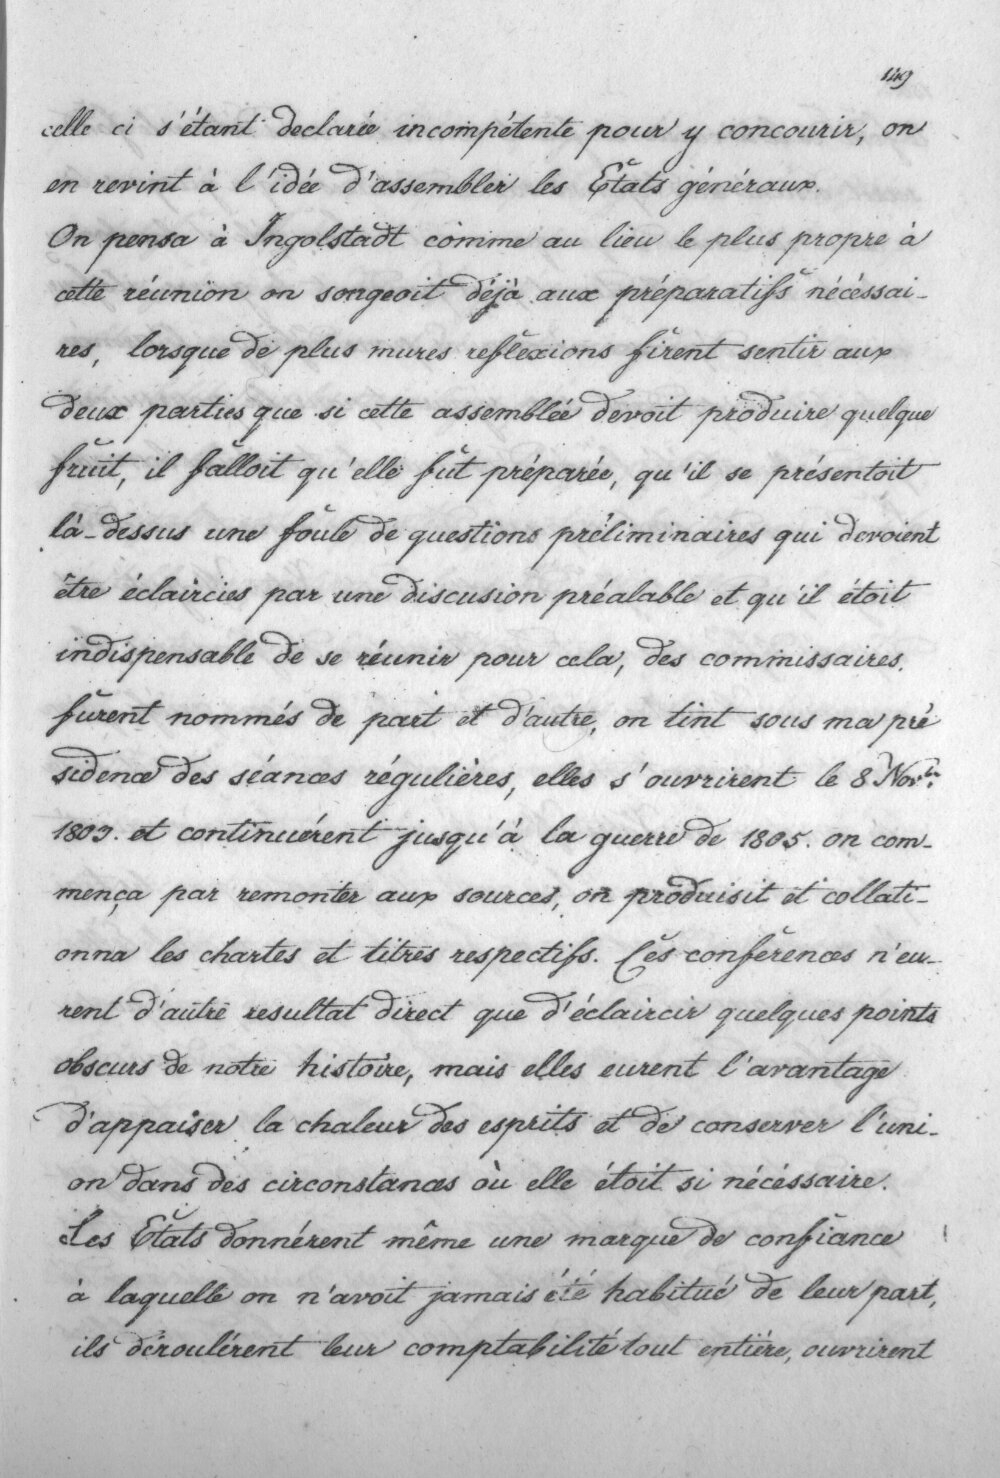 149
celle ci s'étant declarée incompétente pour y concourir, on
en revint à l'idée d'assembler les Etats généraux.
On pensa à Ingolstadt comme au lieu le plus propre à
cette réunion on songeoit déjà aux préparatifs nécéssai-
res, lorsque de plus mures reflexions firent sentir aux
deux parties que si cette assemblée devoit produire quelque
fruit, il falloit qu'elle fut préparée, qu'il se présentoit
là-dessus une foule de questions préliminaires qui devoient
être éclaircies par une discusion préalable et qu'il étoit
indispensable de se réunir pour cela, des commissaires.
furent nommés de part et d'autre, on tint sous ma pré
sidence des séances régulières, elles s'ouvrirent le 8 Nov.br
1803. et continuérent jusqu'à la guerre de 1805. on com-
mença par remonter aux sources, on produisit et collati-
onna les chartes et titres respectifs. Ces conférences n'eu-
rent d'autre resultat direct que d'éclaircir quelques points
obscurs de notre histoire, mais elles eurent l'avantage
d'appaiser la chaleur des esprits et de conserver l'uni-
on dans des circonstances où elle étoit si nécéssaire.
Les Etats donnérent même une marque de confiance
à laquelle on n'avoit jamais été habitué de leur part,
ils déroulérent leur comptabilité tout entière, ouvrirent